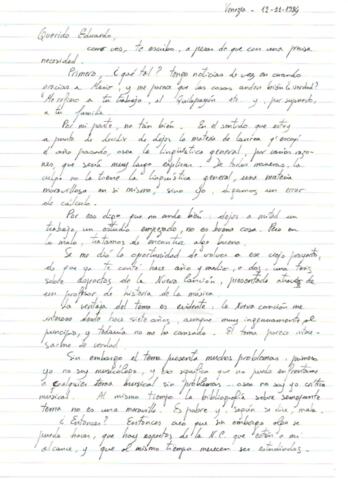 Venezia - 12-11-1984
Querido Eduardo,
como ves, te escribo, a pesar de que con una precisa
necesidad.
Primero, ¿qué tal? tengo noticias de vez en cuando
gracias a Mario, y me parece que las cosas andan bien ¿verdad?
Me refiero a tu trabajo, al Quilapayún etc. y, por supuesto,
a tu familia.
Por mi parte, no tan bien. En el sentido que estoy
a punto de decidir de dejar la materia de laurea que escogí
el año pasado, osea la Linguística general, por varias razo-
nes, que sería muy largo explicar. De todas maneras, la
culpa no la tiene la linguística general, una materia
maravillosa en si misma, sino yo, digamos un error
de cálculo.
Por eso digo que no ando bién, dejar a mitad un
trabajo, un estudio empezado, no es buena cosa. Pero en
lo malo, tratamos de encontrar algo bueno.
Se me dio la oportunidad de volver a ese viejo proyecto,
de que ya te conté hace año y medio, o dos, una tesis
sobre aspectos de la Nueva Canción, presentada através de
un profesor de historia de la música.
La ventaja del tema es evidente, la nueva canción me
interesa desde hace siete años, aunque muy ingenuamente al
principio, y todavía no me ha cansado. El tema parece inte-
resante de verdad.
Sin embargo el tema presenta muchos problemas, primero
yo no soy musicólogo, y eso significa que no puedo enfrentarme
a cualquier tema musical sin problemas... osea no soy yo crítico
musical. Al mismo tiempo la bibliografía sobre semejante
tema no es una maravilla. Es pobre y, según se dice, mala.
¿Entonces? Entonces creo que sin embargo algo se
pueda hacer, que hay aspectos de la N.C. que están a mi
alcance, y que al mismo tiempo merecen ser estudiados.